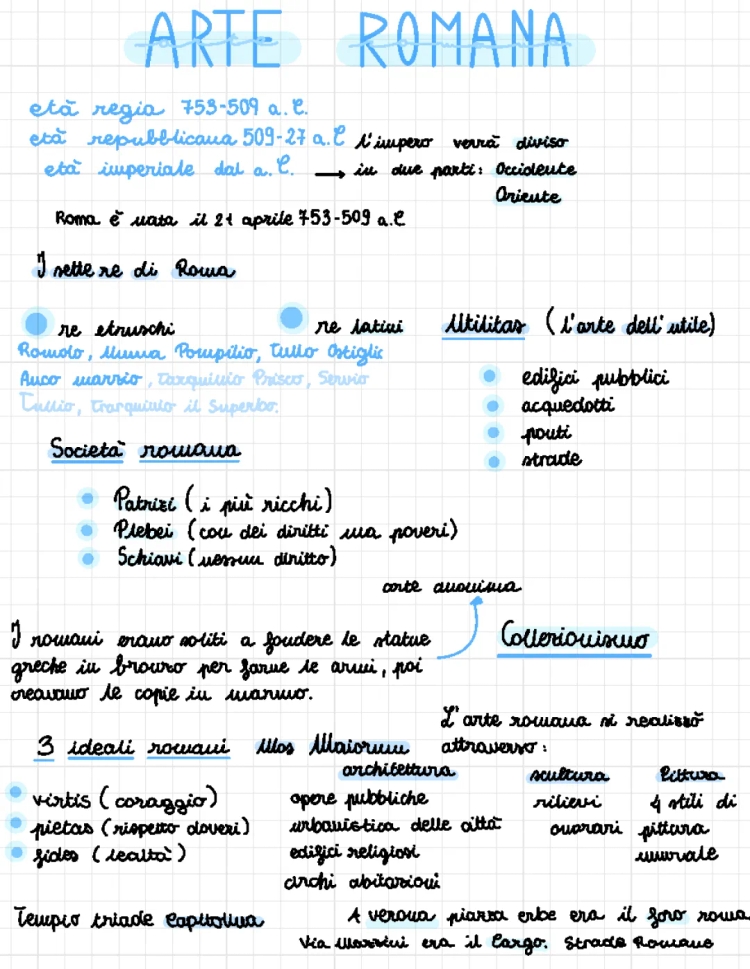 ARTE ROMANA
età regia 753-509 a.C.
età repubblicana 509-27 a.C
età imperiale dal a.C. → l'impero verrà diviso
in due parti: Occidente
Oriente
Roma è nata il 21 aprile 753-509 a.C
I sette re di Roma
re etruschi
re latini
Romolo, Numa Pompilio, Tullo Ostiglio
Anco marsio, Tarquinio Prisco, Servio
Tullio, Trarquinio il Superbo.
Utilitas (l'arte dell'utile)
edifici pubblici
acquedotti
ponti
strade
Società romana
Patrizi (i più ricchi)
Plebei (con dei diritti ma poveri)
Schiavi (nessun diritto)
arte anonima
I romani erano soliti a fondere le statue
greche in bronzo per farne le armi, poi
creavano le copie in marmo.
Collezionismo
3 ideali romani Mos Maiorum
virtis (coraggio)
pietas (rispetto doveri)
fides (lealtà)
L'arte romana si realizzò
attraverso:
architettura
opere pubbliche
urbanistica delle città
edifici religiosi
circhi abitazioni
scultura
rilievi
onorari
Pittura
4 stili di
pittura
murale
Tempio triade Capitolina
A verona piazza erbe era il foro roma
Via Mazzini era il Cargo. Strade Romane